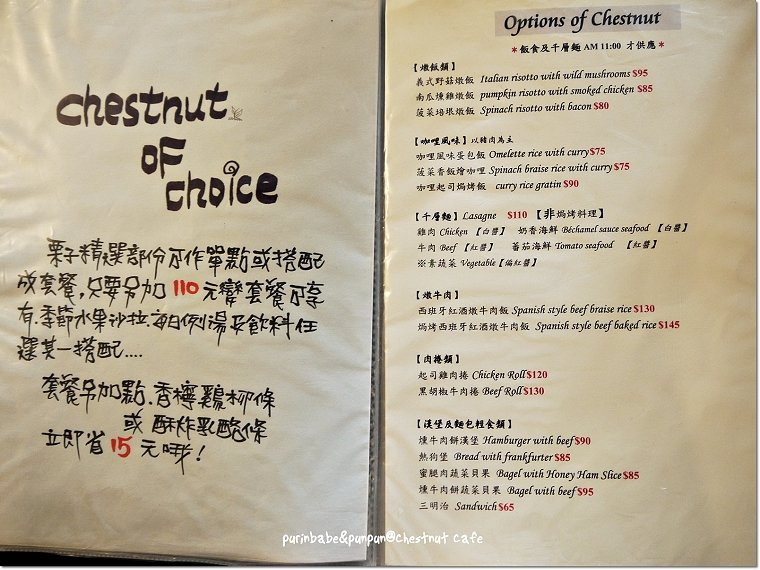 chestnut
OF
choice
栗子精選部份可作單點或搭配
成套餐,只要另加110元變套餐可享
有.季節水果沙拉.每日例湯及飲料任
選其一搭配....
套餐另加點.香檸雞柳條
或 酥炸乳酪條
立即省15元哦!
Options of Chestnut
*飯食及千層麵 AM 11:00 才供應*
【燉飯類】
義式野菇燉飯 Italian risotto with wild mushrooms $95
南瓜燻雞燉飯 pumpkin risotto with smoked chicken $85
菠菜培根燉飯 Spinach risotto with bacon $80
【咖哩風味】以豬肉為主
咖哩風味蛋包飯 Omelette rice with curry $75
菠菜香飯燴咖哩 Spinach braise rice with curry $75
咖哩起司焗烤飯 curry rice gratin $90
【千層麵】Lasagne $110 【非焗烤料理】
雞肉 Chicken 【白醬】 奶香海鮮 Béchamel sauce seafood 【白醬】
牛肉 Beef 【紅醬】 蕃茄海鮮 Tomato seafood 【紅醬】
※素蔬菜 Vegetable【偏紅醬】
【燉牛肉】
西班牙紅酒燉牛肉飯 Spanish style beef braise rice $130
焗烤西班牙紅酒燉牛肉飯 Spanish style beef baked rice $145
【肉捲類】
起司雞肉捲 Chicken Roll $120
黑胡椒牛肉捲 Beef Roll $130
【漢堡及麵包輕食類】
燻牛肉餅漢堡 Hamburger with beef $90
熱狗堡 Bread with frankfurter $85
蜜腿肉蔬菜貝果 Bagel with Honey Ham Slice $85
燻牛肉餅蔬菜貝果 Bagel with beef $95
三明治 Sandwich $65
purinbabe&punpun@chestnut cafe